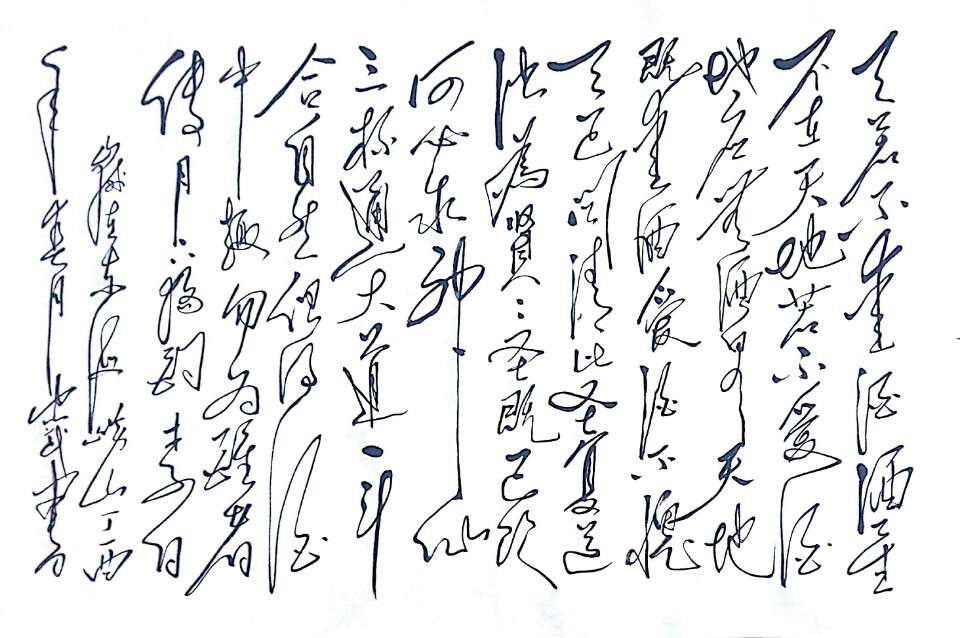 天若不爱酒酒星
不在天地若不爱酒
地应无酒泉天地
既爱酒爱酒不愧
天已闻清比圣复道
浊為賢〻圣既已饮
何必求神仙
三杯通大道一斗
合自然但得酒
中趣勿为醒者
傳月下独酌李白
在东海崂山丁酉
年春月